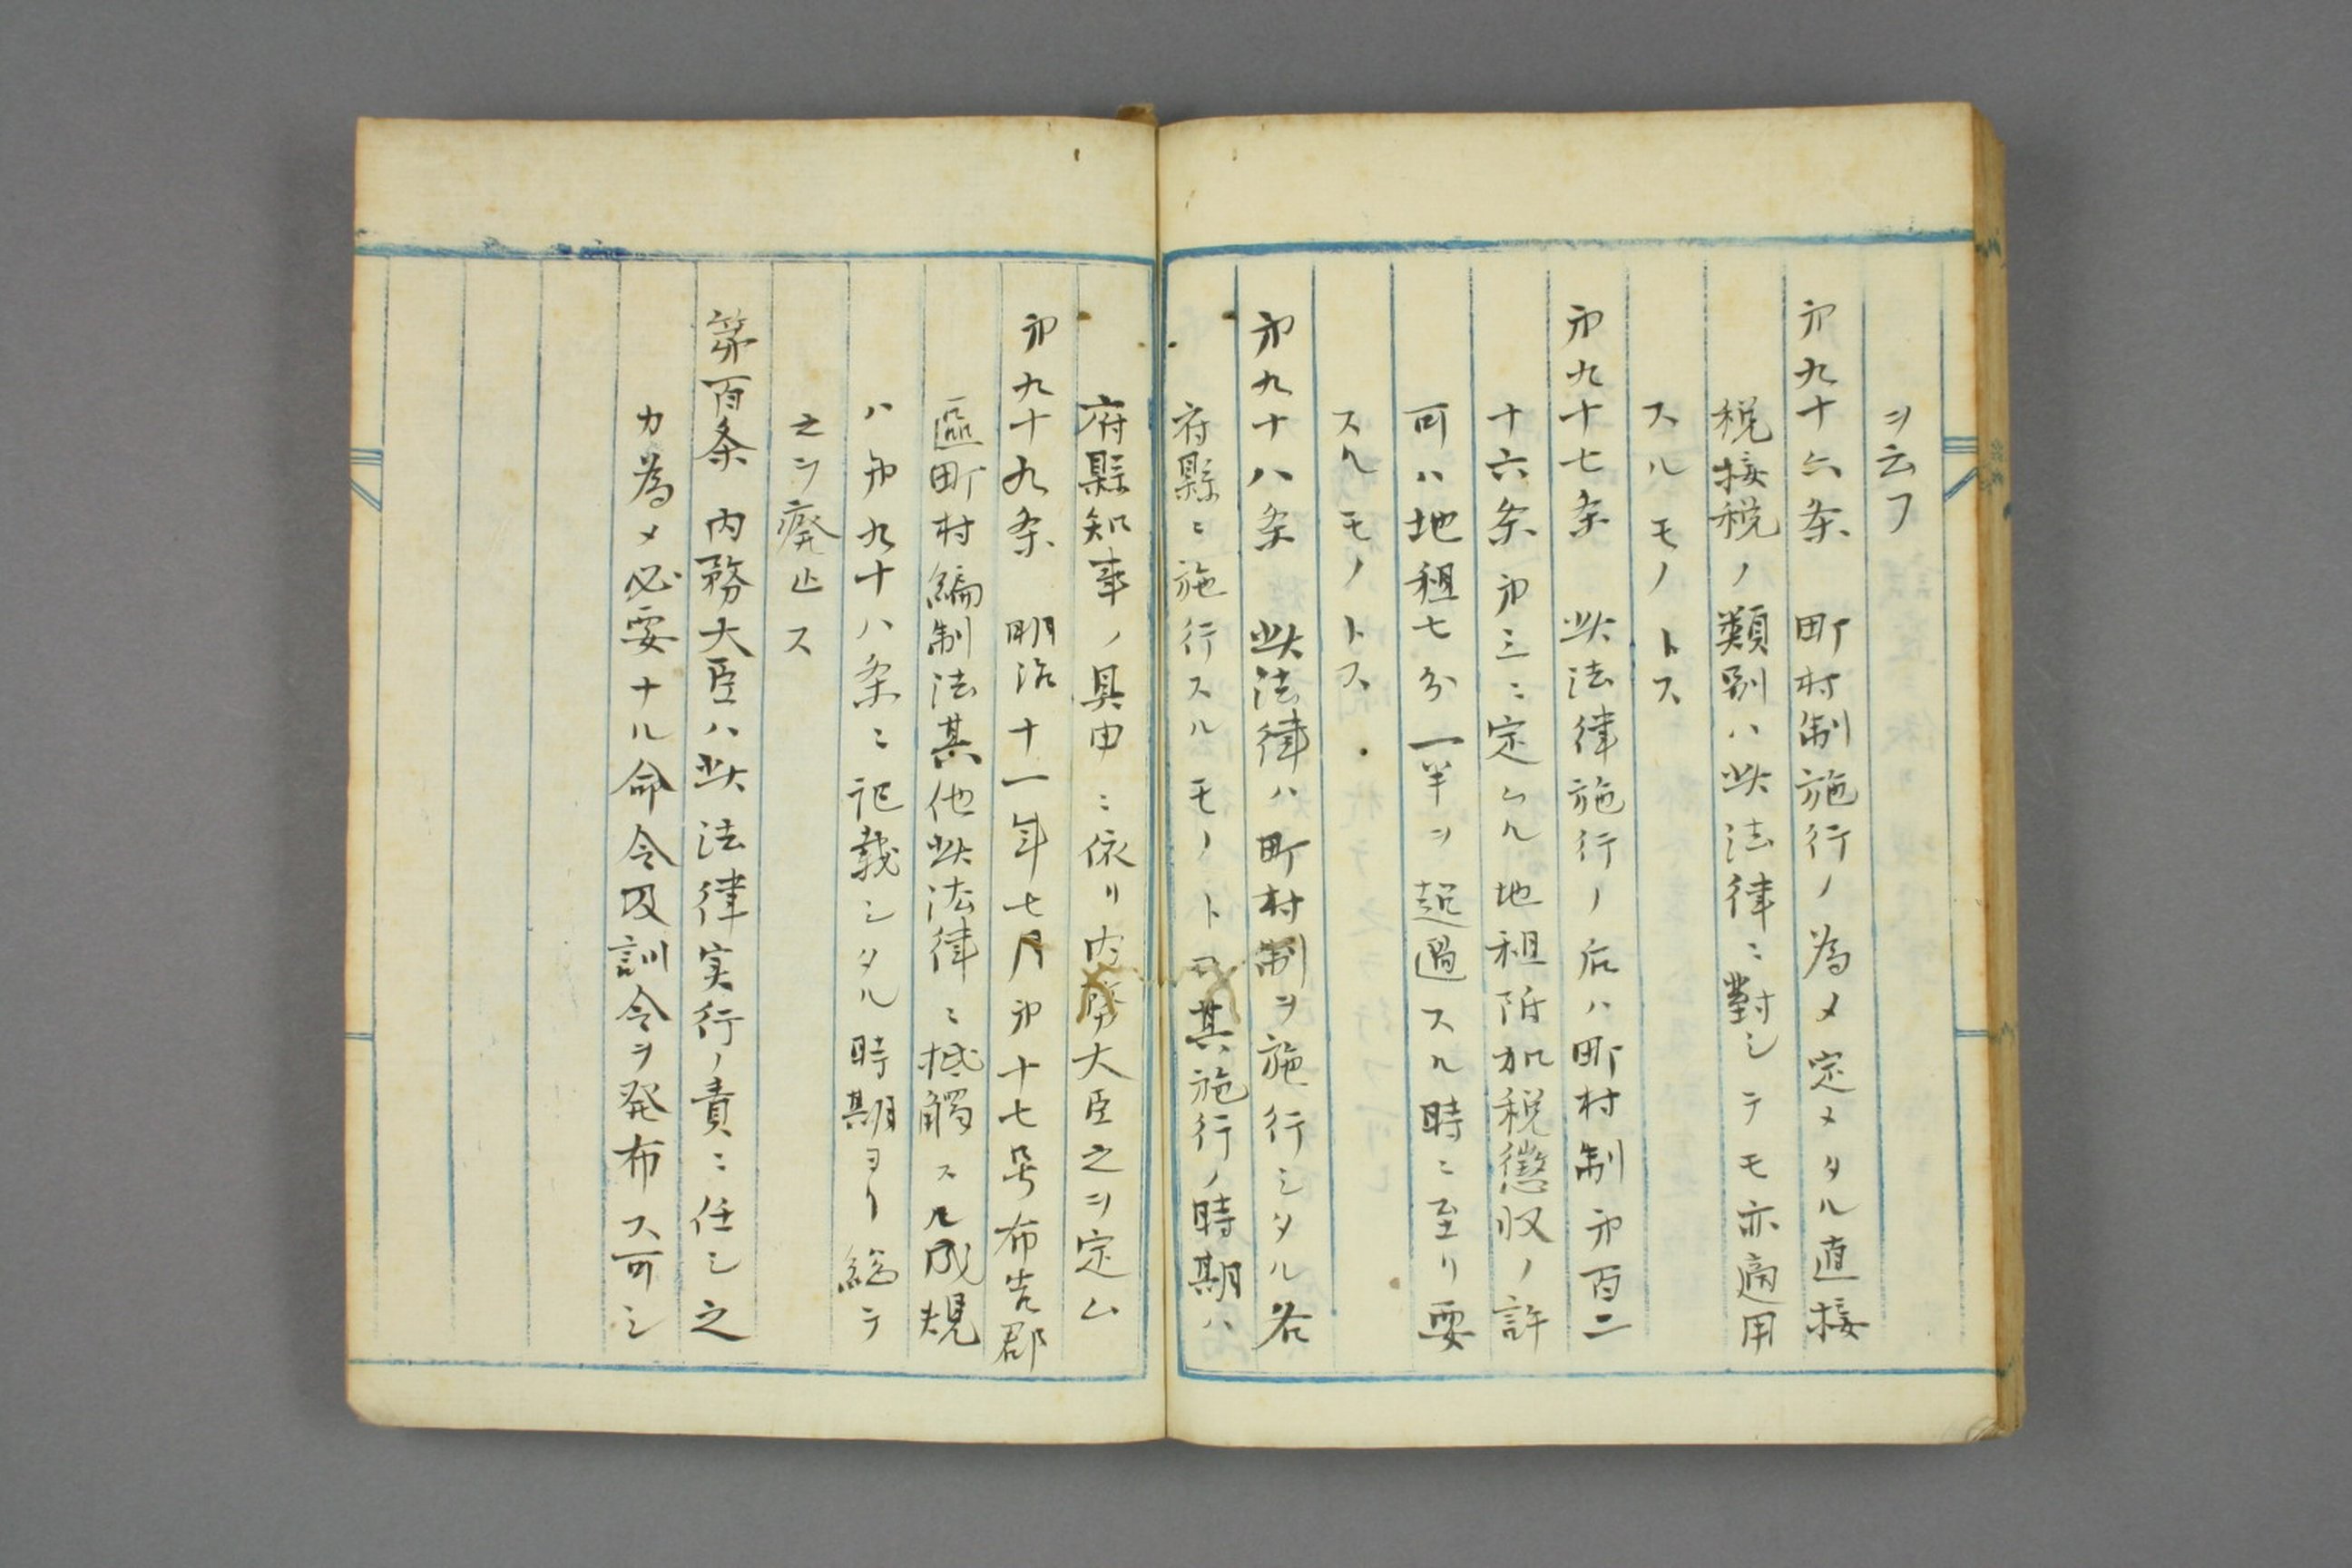 ヲ云フ
第九十六条　町村制施行ノ為メ定メタル直接
税接税ノ類別ハ此法律ニ對シテモ亦適用
スルモノトス
第九十七条　此法律施行ノ后ハ町村制第百二
十六条第三ニ定ムル地租附加税懲収ノ許
可ハ地租七分一半ヲ超過スル時ニ至リ要
スルモノトス
第九十八条　此法律ハ町村制ヲ施行シタル各
府縣ニ施行スルモノトス其施行ノ時期ハ
府縣知事ノ具申ニ依リ内務大臣之ヲ定ム
第九十九条　明治十一年七月第十七号布告郡
區町村編制法其他此法律ニ抵觸スル成規
ハ第九十八条ニ記載シタル時期ヨリ総テ
之ヲ廃止ス
第百条　内務大臣ハ此法律実行ノ責ニ任シ之
カ為メ必要ナル命令及訓令ヲ発布ス可シ